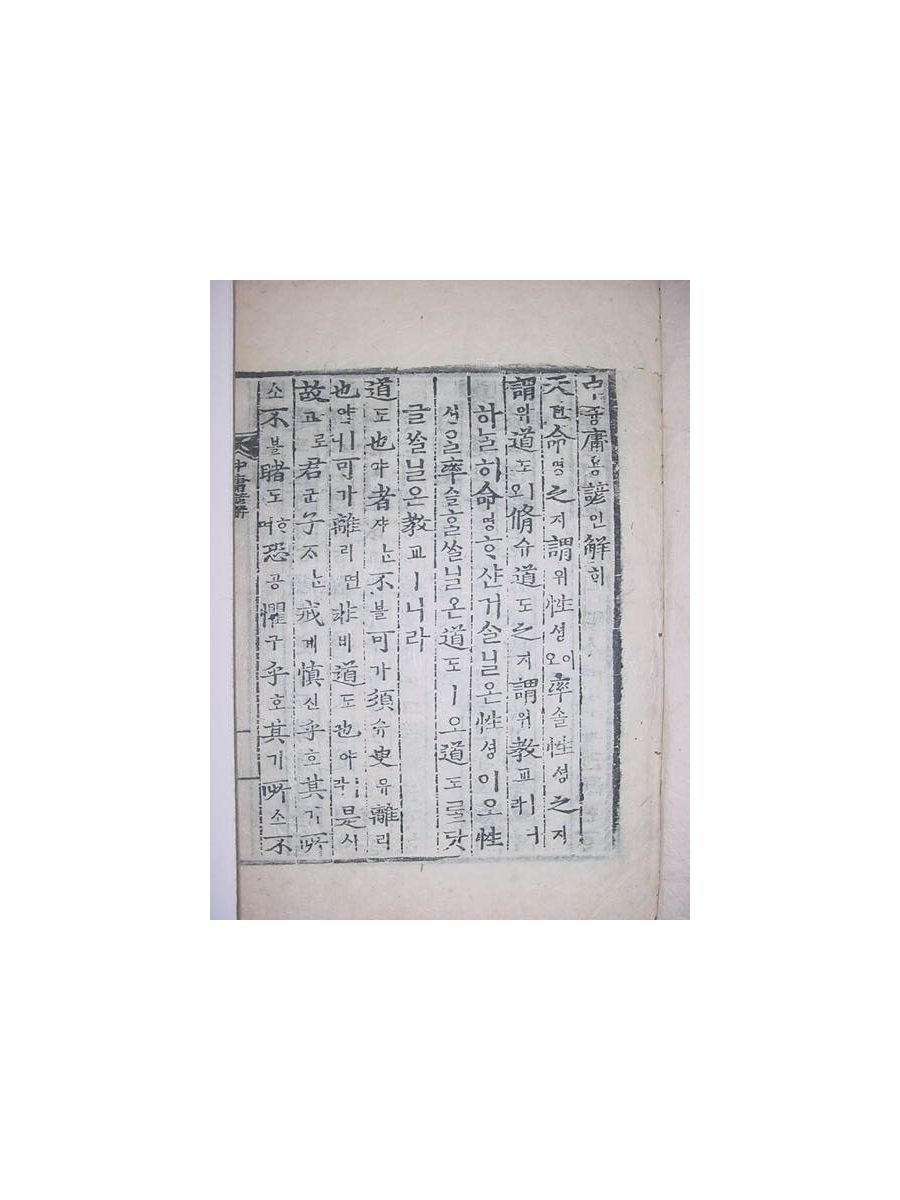 中듕庸용諺언解ᄒᆡ
天텬命명之지謂위性셩이오率솔性셩之지
謂위道도ㅣ오脩슈道도之지謂위敎교ㅣ니라
하ᄂᆞᆯ히命명ᄒᆞ샨거ᄉᆞᆯ닐온性셩이오性
셩을率솔ᄒᆞᆯᄊᆞᆯ닐온道도ㅣ오道도ᄅᆞᆯ닷
글ᄊᆞᆯ닐온敎교ㅣ니라
道도也야者쟈ᄂᆞᆫ不블可가須슈臾유離리
也야ㅣ니可가離리면非비道도也야ㅣ라是시
故고로君군子ᄌᆞᄂᆞᆫ戒계愼신乎호其기所
소不블睹도ᄒᆞ며恐공懼구乎호其기所소不
中庸諺解
一